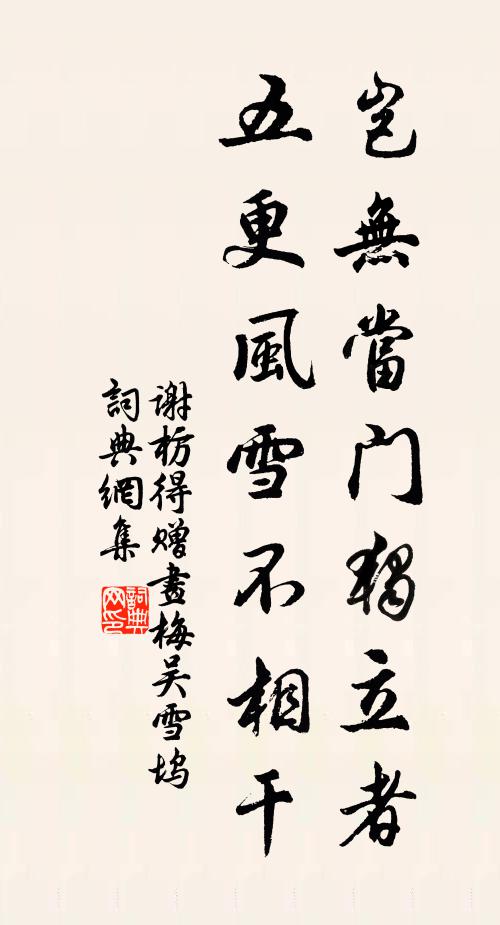 豈無當门獨立者
五更風雪不相干
谢枋得赠畫梅吴雪坞
詞典網集
詞典
网印